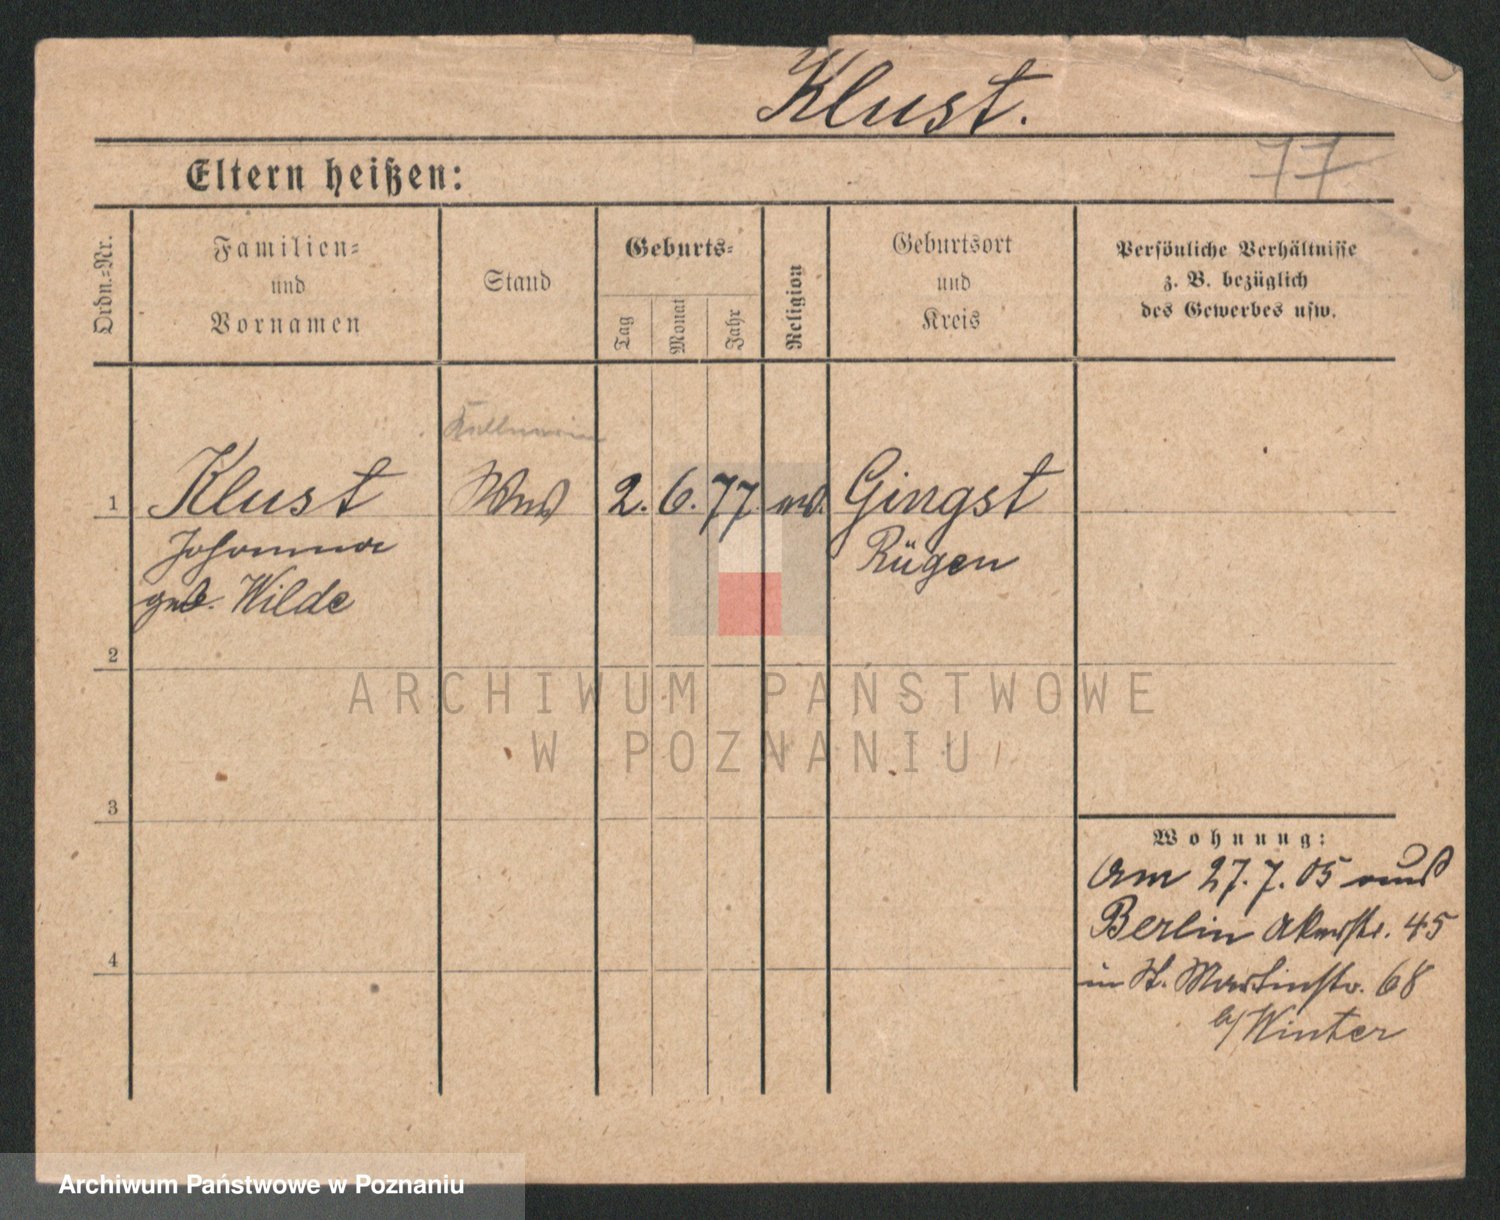 Klust.
77
Eltern heißen:
Ordn.-Nr.
Familien-
und
Vornamen
Stand
Geburts-
Tag
Monat
Jahr
Religion
Geburtsort
und
Kreis
Persönliche Verhältnisse
z. B. bezüglich
des Gewerbes usw.
1 Klust Wwe 2. 6. 77. Gingst
Johanna Rügen
geb. Wilde
2
3
4
Wohnung:
Am 27. 7. 05 aus
Berlin 45
in St. Martinstr. 68
b/ Winter
ARCHIWUM PAŃSTWOWE
W POZNANIU
Archiwum Państwowe w Poznaniu